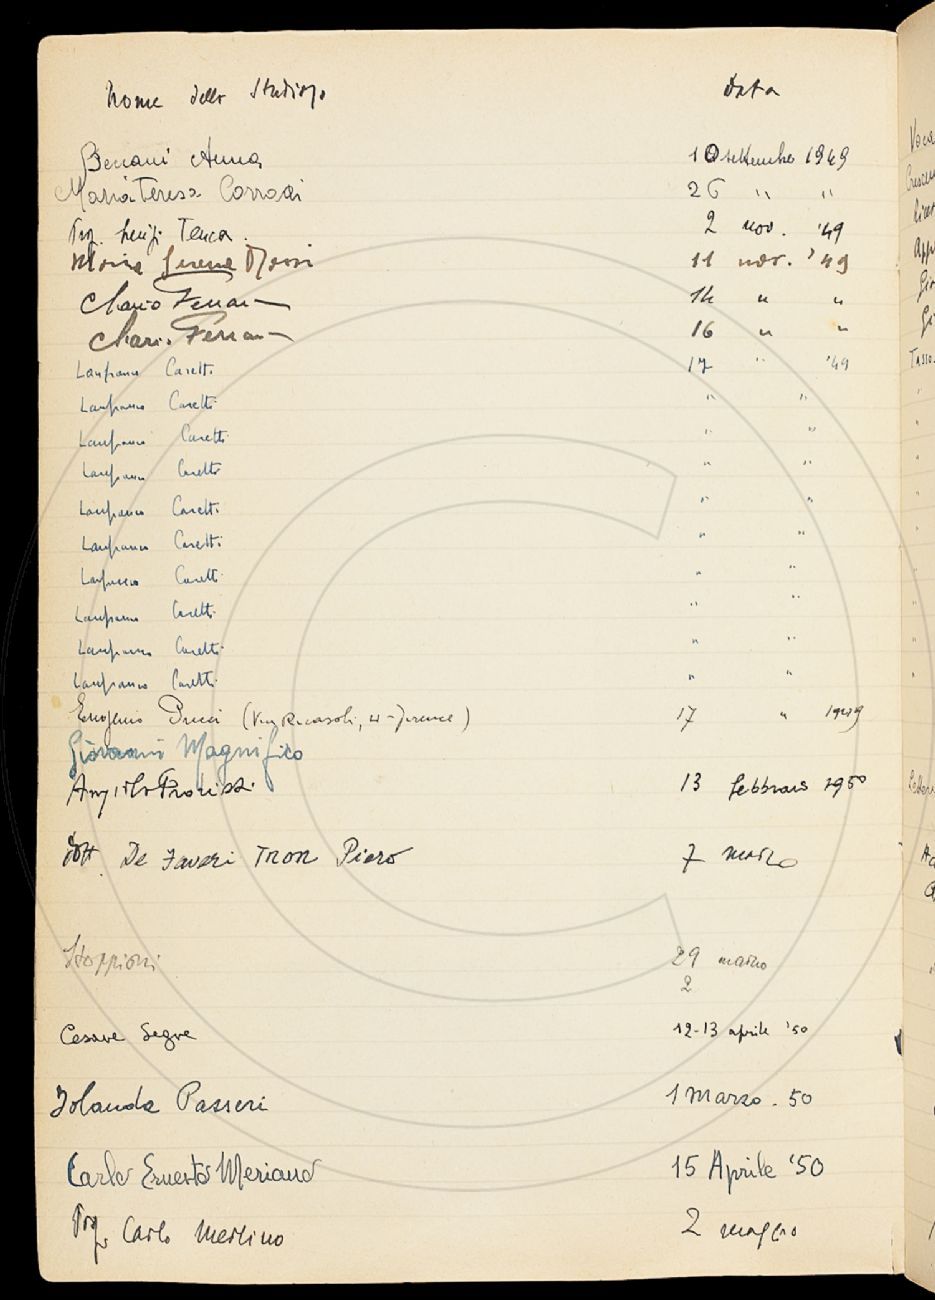 Nome dello Studioso Data
Anna 10 settembre 1949
Maria Teresa Corradi 26 " "
Prof. Luigi Tenca. 2 nov. '49
Maria 11 nov. '49
Mario Ferrari 14 " "
Mario Ferrari 16 " "
Lanfranco Caretti 17 " '49
Lanfranco Caretti " "
Lanfranco Caretti " "
Lanfranco Caretti " "
Lanfranco Caretti " "
Lanfranco Caretti " "
Lanfranco Caretti " "
Lanfranco Caretti " "
Lanfranco Caretti " "
Lanfranco Caretti " "
Eugenio (Via Ricasoli, 4 - Firenze) 17 " 1949
Giovanni Magnifico
13 febbraio 1950
Dott. De Faveri Tron Piero 7 marzo
Stoppioni 29 marzo
2
Cesare Segre 12-13 aprile '50
Jolanda Passeri 1 Marzo. 50
Carlo Ernesto Meriano 15 Aprile '50
Prof. Carlo Merlino 2 maggio